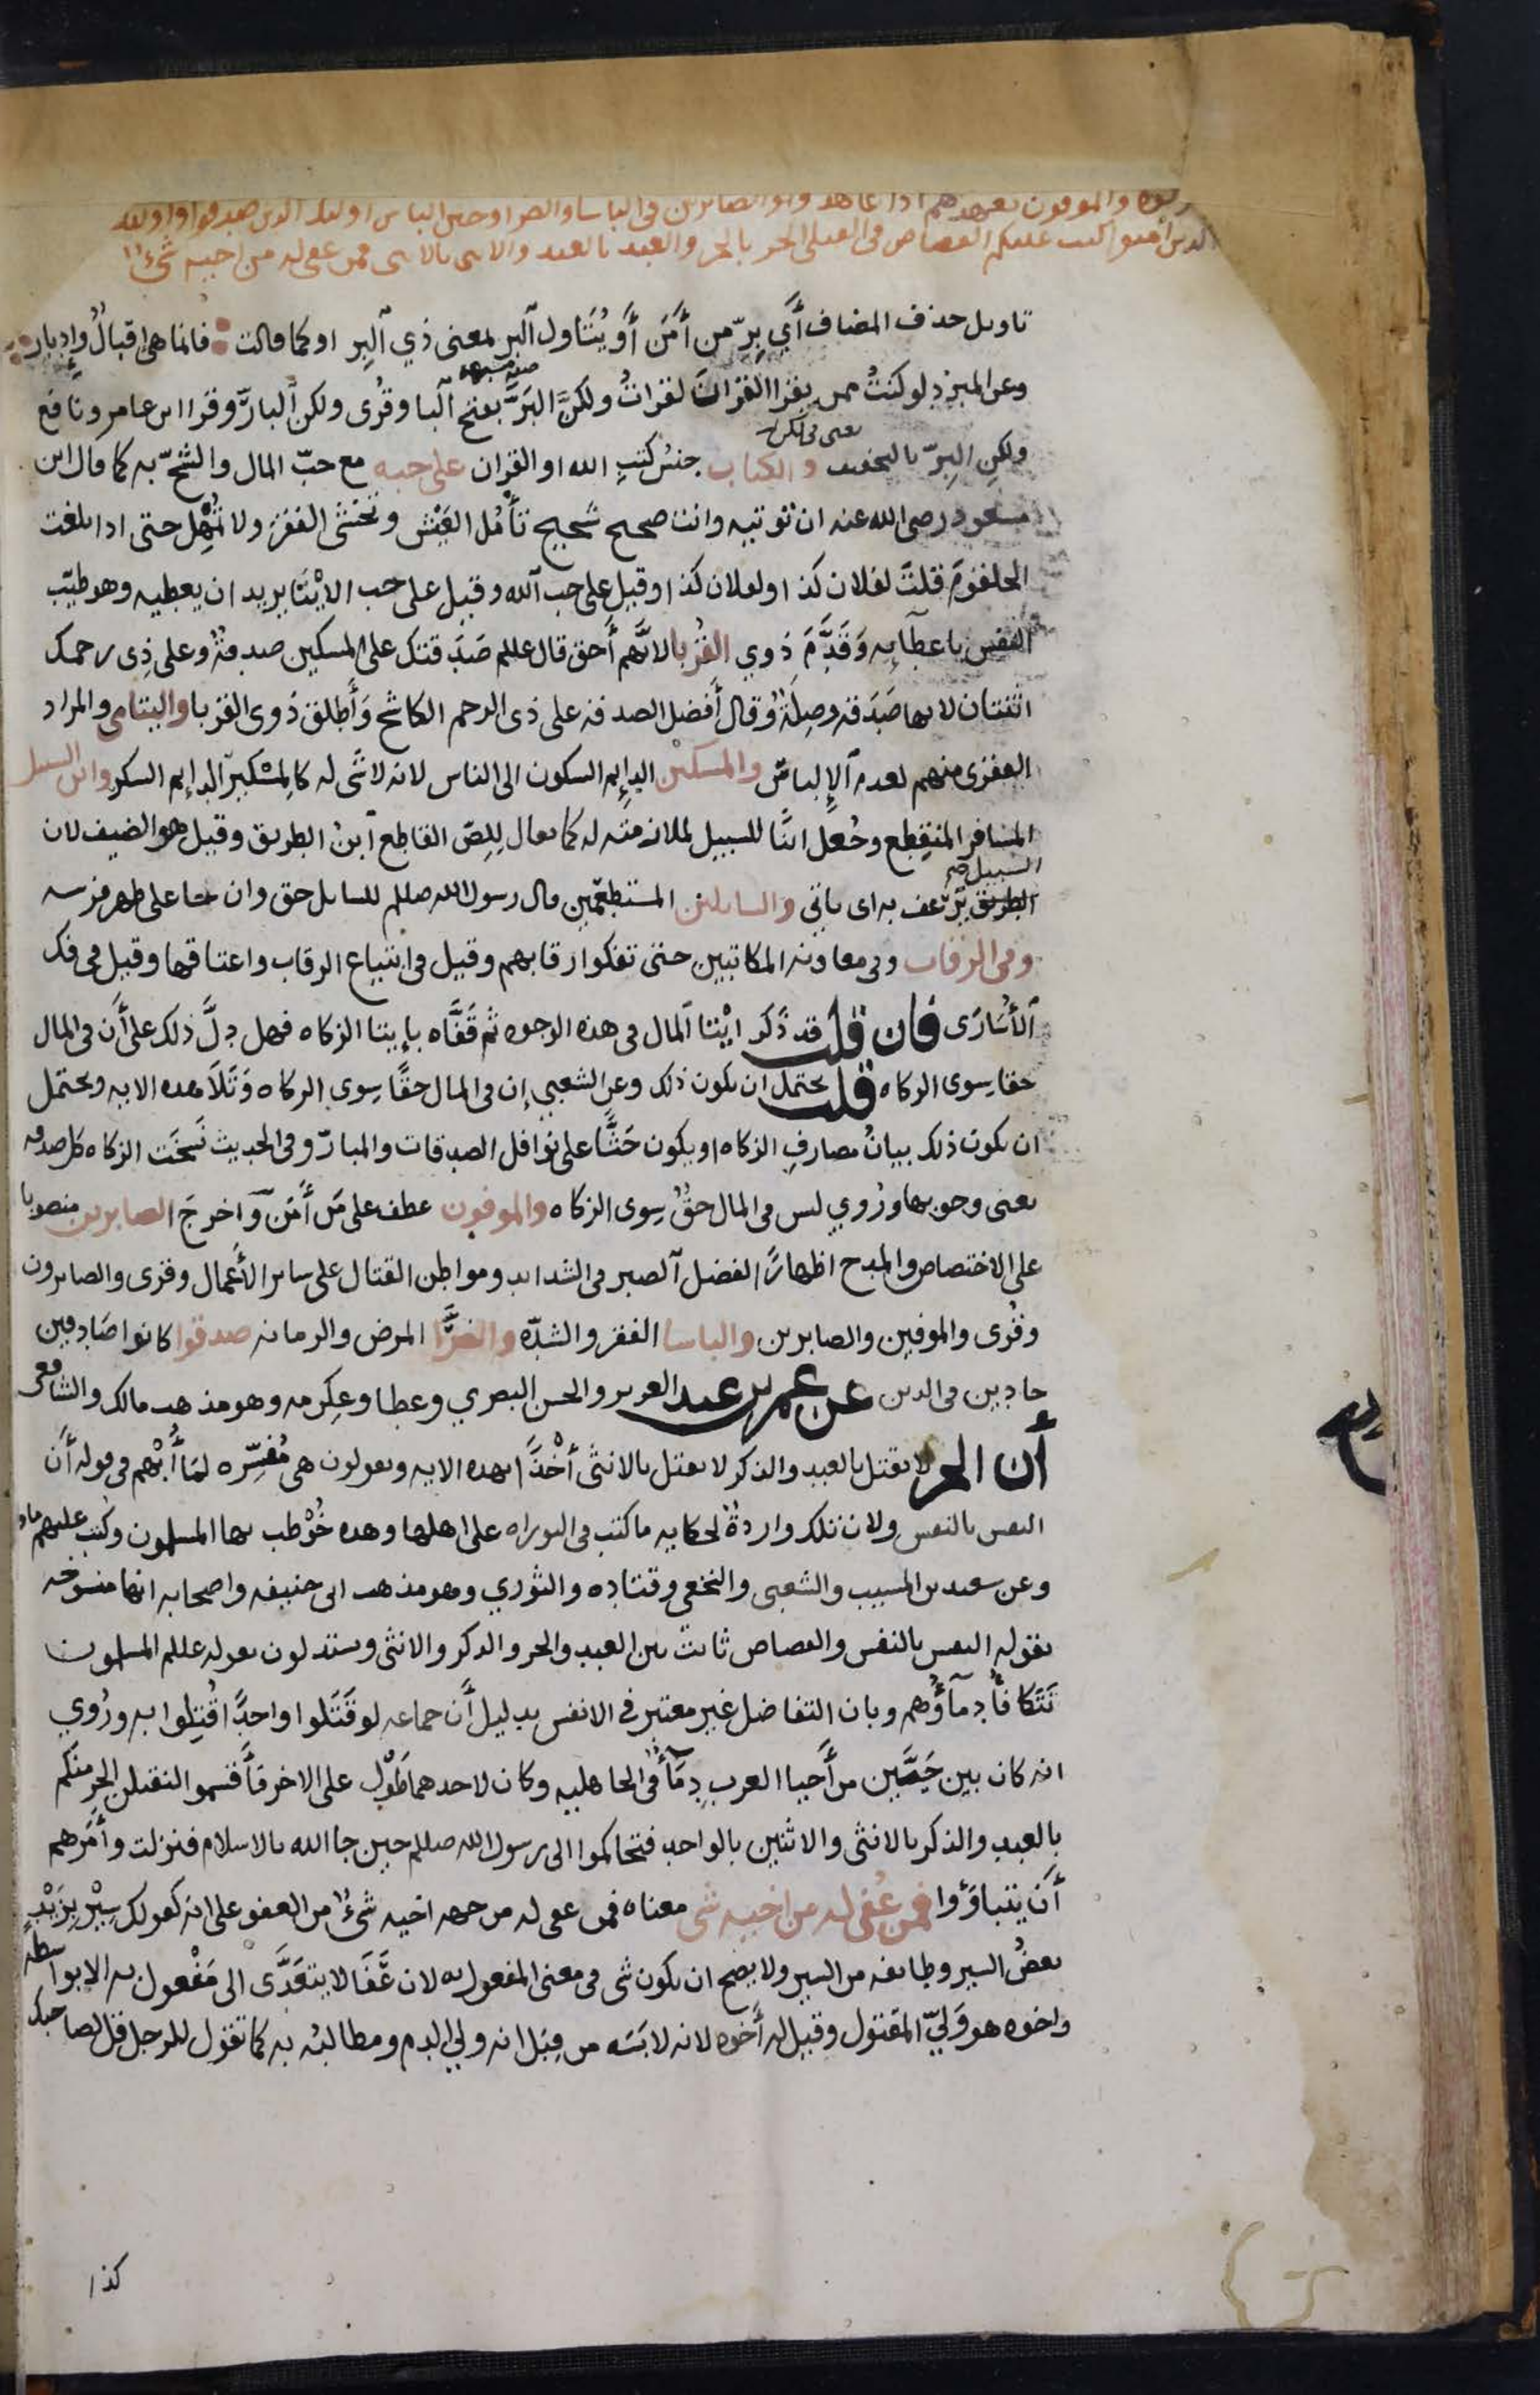 والموفون بعهدهم اذا عاهدوا والصابرين فى الباسا والضرا وحين الباس اوليك الدين صدقوا واوليك
الدين امنوا كتب عليكم القصاص فى القتلى الحر بالحر والعبد بالعبد والانثى بالانثى فمن عفى له من اخيه شىءٌ
تاويل حذف المضاف أَي بِرّ من أَمَنَ أَو يُتَناول اَلبر بمعنى ذي اَلبِر او كما قالت فانما هى اقبالٌ وإدبار
وعن المبرد لو كنتُ ممن يقرا القرانَ لقراتُ ولكنَّ البَرَّ بفتح اَلبا وقُرى ولكن اَلبارَّ وقرا ابن عامر ونافع
ولكنِ البِرّ بالتخفيف والكتاب جنسُ كتبِ الله او القران على حبه مع حبّ المال والشحّ به كما قال ابن
مسعود رضى الله عنه ان توتيه وانت صحيح شحيح تأمُل العَيْش وتخشى الفقرَ ولا تُمهِل حتى اذا بلغت
الحلقومَ قلتَ لفلان كذا ولفلان كذا وقيل على حب اَلله وقيل على حب الايْتَا يريد ان يعطيه وهو طيّب
النفس باعطآيه وَقَدَّمَ ذوي القُربا لانَّهم أحق قال عللم صَدَقتك على المسكين صدقةٌ وعلى ذِى رحمك
اثنتان لانها صَدَقه وصِلَةٌ وقال أَفضل الصدقه على ذى الرحم الكاشح وَأَطلق ذوى القربا واليتامى والمراد
الفقرى منهم لعدم اَلإِلباس والمسكين الدايم السكون الى الناس لانه لا شَى له كالمسْكير الدايم السكر وابن السبيل
المسافر المنقِطع وجُعل ابنًا للسبيل لملازمته له كما يقال لِلِصّ القاطع اَبنُ الطريق وقيل هو الضيف لان
السبيل صح
الطريق تَرعَف به اى ياتى والسايلين المستطعمين قال رسول الله صللم للسايل حق وان جا على ظهر فرسه
وفى الرقاب وفى معاونه المكاتبين حتى تفكوا رقابهم وقيل فى ابتياع الرقاب واعتاقها وقيل فى فك
اَلأُسَارَى فان قلت قد ذَكَر ايْتا اَلمال فى هذه الوجوه ثم قَفَّاه بإيتا الزكاه فهل دلَّ ذلك على أَن فى المال
حقا سِوى الزكاه قلت يحتمل ان يكون ذلك وعن الشعبي إن فى المال حقًا سِوى الزكاه وَتَلاَ هده الايه ويحتمل
ان يكون ذلك بيانُ مصارفِ الزكاه او يكون حَثًّا على نوافل الصدقات والمبارّ وفى الحديث نَسَخَت الزكاه كل صدقه
يعنى وجوبها ورُوي ليس فى المال حقٌ سِوى الزكاه والموفون عطف على مَن أَمَن وَاَخرجَ الصابرين منصوبا
على الاختصاص والمدح اظهارًا لفضل اَلصبر فى الشدايد ومواطن القتال على ساير الأَعمال وقرى والصابرون
وقُرى والموفين والصابرين والباسا الفقر والشدّه والضرَّا المرض والزمانه صدقوا كانوا صَادقين
جادين فى الدين عن عمر بن عبد العزيز والحسن البصري وعطا وعِكرمه وهو مذهب مالك والشافعى
أن الحر لا يقتل بالعبد والذكر لا يقتل بالانثى أخْذًا بهده الايه ويقولون هى مُفسِّره لمَا أُبْهِم فى قوله أَن
النفس بالنفس ولان تلك واردةٌ لحكايه ما كتب فى التوراه على اهلها وهده خُوْطب بها المسلمون وكتب عليهم ما
وعن سعيد بن المسيب والشعبى والنخعى وقتاده والثوري وهو مذهب ابى حنيفه واصحابه انها منسوخه
بقوله النفس بالنفس والقصاص ثابتٌ بين العبد والحر والذكر والانثى ويستدلون بقوله عللم المسلمون
تَتَكَافأُ دِمآوُهم وبان التفاضل غير معتبر في الانفس بدليل أَن جماعه لو قَتَلوا واحدًا قُتِلوا به ورُوي
انه كان بين حَيَّين من أَحيا العرب دِمآءٌ فى الجاهليه وكان لاحدهما طَوْلٌ على الاخر فأقسموا لنقتلن الحر منكم
بالعبد والذكر بالانثى والاثنين بالواحد فتحاكموا الى رسول الله صللم حين جا الله بالاسلام فنزلت وأَمَرهم
أَن يتباوَؤا فمن عُفى له من اخيه شى معناه فمن عفى له من جهه اخيه شىءٌ من العفو على انه كقولك سِيْر بِزَيْدٍ
بعضُ السير وطايفه من السير ولا يصح ان يكون شى فى معنى المفعول به لان عَفَا لا يتعَدَّى الى مَفعول به الا بواسطه
واخوه هو وَليّ المقتول وقيل له أَخوه لانه لابَسَه من قِبَل انه ولي الدم ومطالبه به كما تقول للرجل قل لصاحبك
كذا